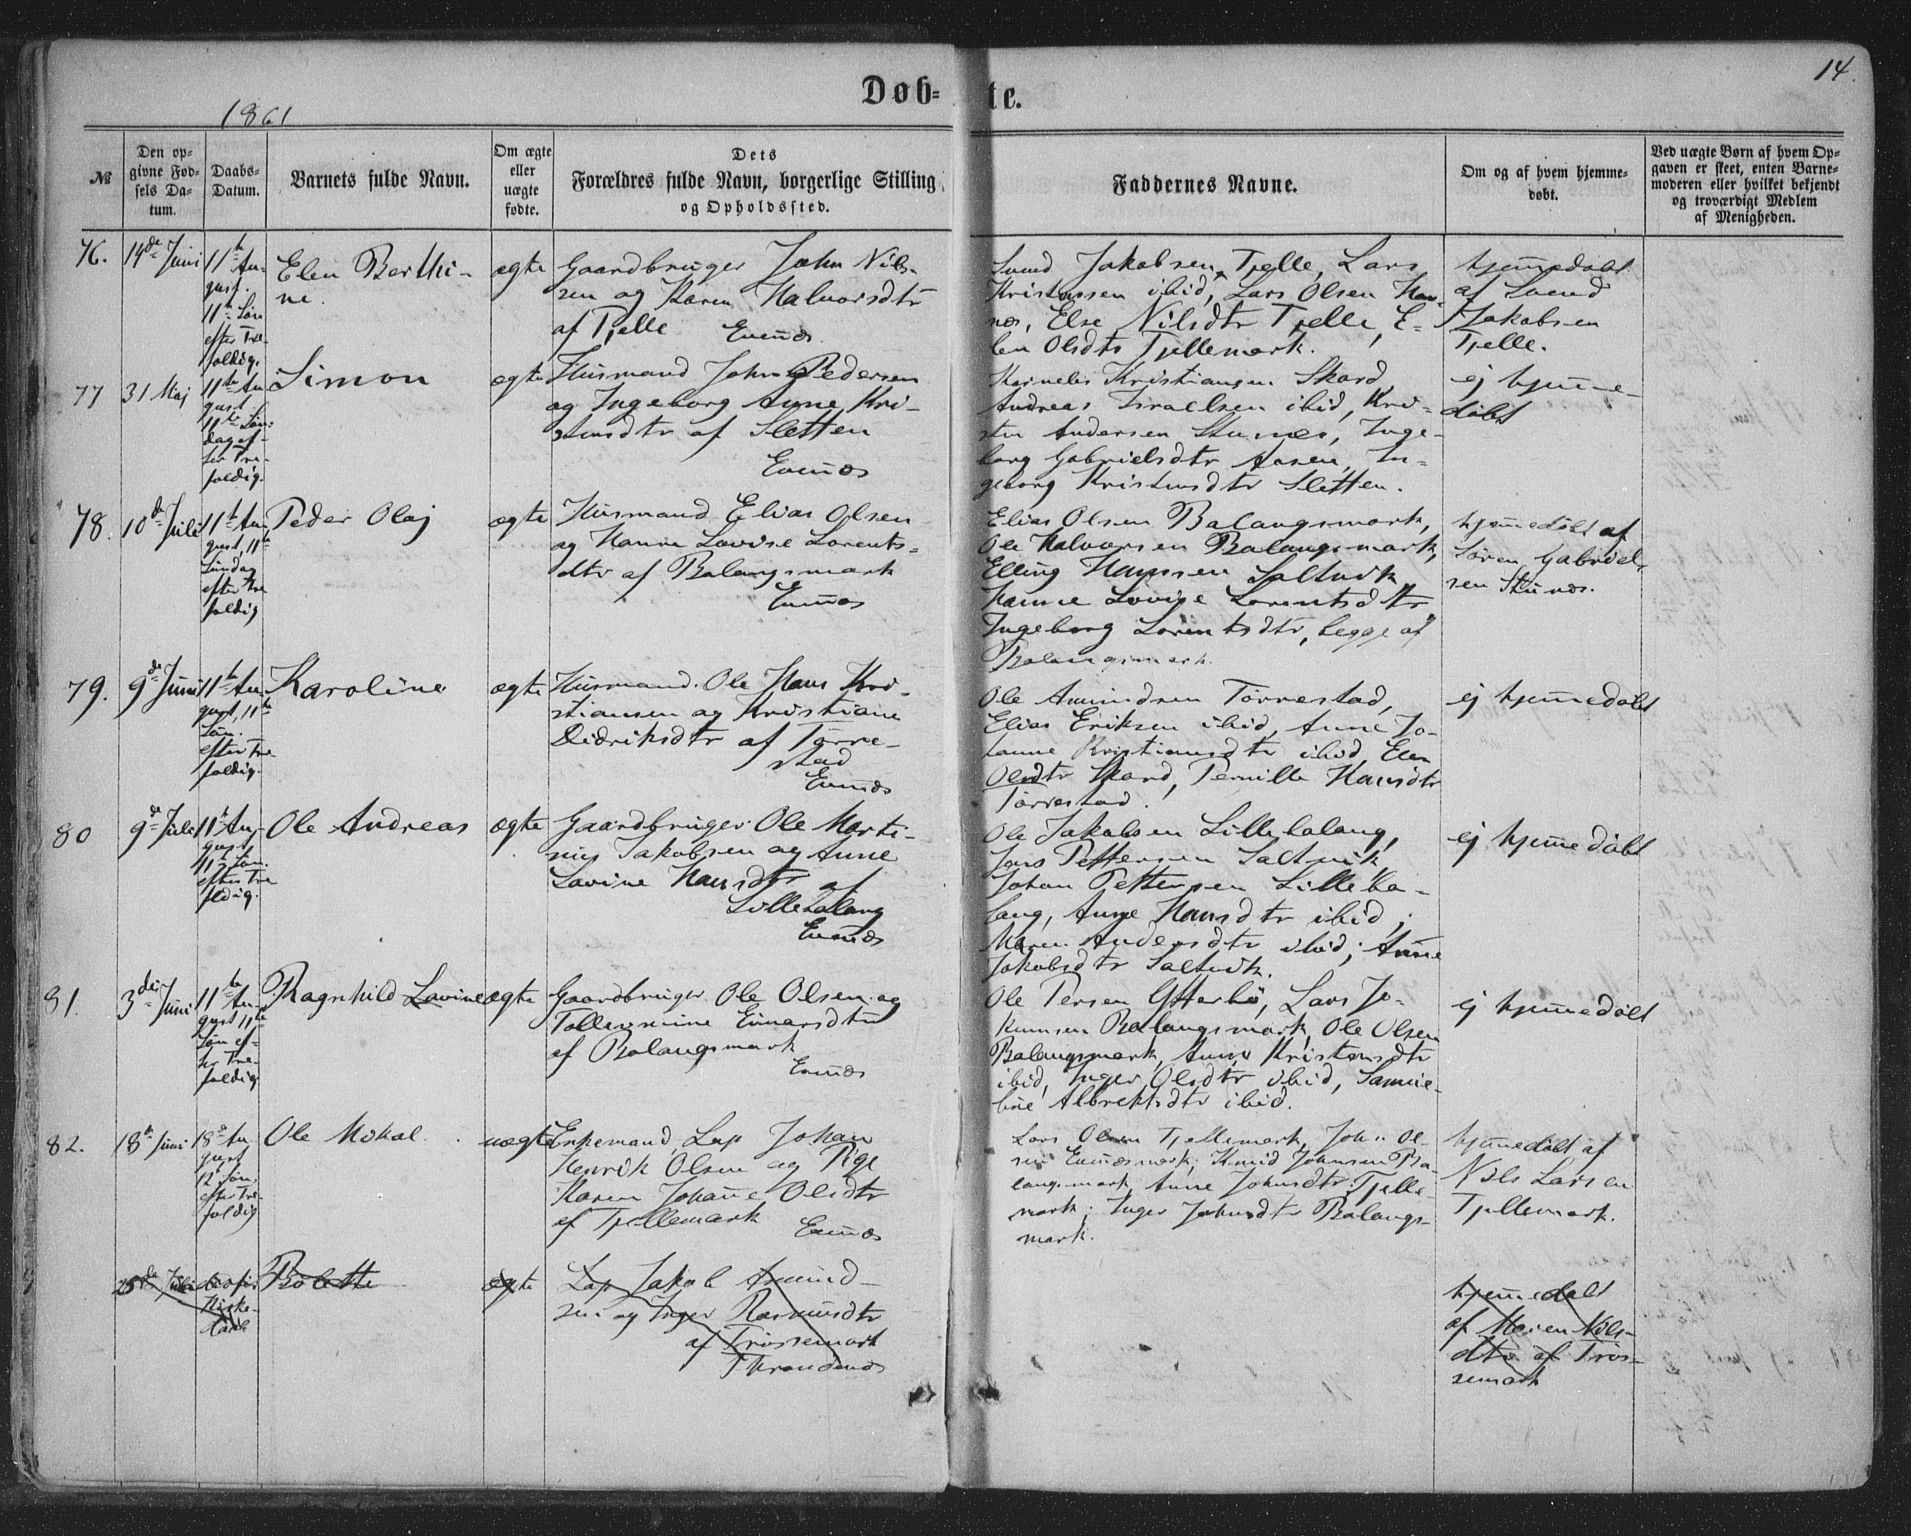 14.
1861
Døb-
te.
№
Den op-
givne Fød-
sels Da-
tum.
Daabs-
Datum.
Barnets fulde Navn.
Om ægte
eller
uægte
fødte.
Dets
Forældres fulde Navn, borgerlige Stilling
og Opholdssted.
Faddernes Navne.
Om og af hvem hjemme-
døbt.
Ved uægte Børn af hvem Op-
gaven er skeet, enten Barne-
moderen eller hvilket bekjendt
og troværdigt Medlem
af Menigheden.
76.
14de Juni
11te Au-
gust.
11te Søn
efter Tre-
foldig.
Elen Berthi-
ne.
ægte
Gaardbruger John Nils-
sen og Karen Halvorsdtr
af Tjelle Evenæs
Svend Jakobsen Tjelle, Lars
Kristensen ibid, Lars Olsen
Else Nilsdtr Tjelle, E-
len Olsdtr Tjellemark.
hjemmedøbt
af Svend
Jakobsen
Tjelle.
77
31 Maj
11te Au-
gust
11te Søn-
dag ef-
ter Tre-
foldig.
Simon
ægte
Husmand John Pedersen
og Ingeborg Anne Kri-
stensdtr af Sletten
Evenæs
Kornelis Kristiansen Skard,
Andreas Israelsen ibid, Kri-
sten Andersen Stunes, Inge-
borg Gabrielsdtr Aasen, In-
geborg Kristensdtr Sletten.
ej hjemme-
døbt
78.
10de Juli
11te Au-
gust, 11te
Søndag
efter Tre
foldig
Peder Olaj
ægte
Husmand Elias Olsen
og Hanna Lovise Lorents-
dtr af Balangsmark
Evenæs
Elias Olsen Balangsmark,
Ole Halvorsen Balangsmark,
Elling Hansen Saltvik
Hanne Lovise Lorentsdtr
Ingeborg Lorentsdtr, begge af
Balangsmark.
hjemmedøbt af
Søren Gabriel-
sen Stunes.
79.
9de Juni
11te Au-
gust, 11te
Søn.
efter Tre
foldig.
Karoline
ægte
Husmand Ole Hans Kri-
stiansen og Kristiane
Didriksdtr af Tørre-
stad
Evenæs
Ole Amundsen Tørrestad,
Elias Eriksen ibid, Anne Jo-
hanne Kristiansdtr ibid, Elen
Olsdtr Skard, Pernille Hansdtr
Tørrestad.
ej hjemmedøbt
80
9de Juli
11te Au-
gust
11te Søn.
efter Tre
foldig.
Ole Andreas
ægte
Gaardbruger Ole Marti-
nus Jakobsen og Anne
Lovine Hansdtr af
Lillebalang
Evenæs
Ole Jakobsen Lillebalang,
Jens Pettersen Saltvik,
Johan Pettersen Lilleba-
lang, Anne Hansdtr ibid;
Maren Andersdtr ibid; Anne
Jakobsdtr Saltvik.
ej hjemmedøbt
81.
3die Juni
11te Au-
gust 11te
Søn ef-
ter Tre-
foldig
Ragnhild Lovine
ægte
Gaardbruger Ole Olsen og
Tollevmine Einarsdtr
af Balangsmark
Evenæs
Ole Persen Ytterbø, Lars Jo-
Balangsmark, Ole Olsen
Balangsmark, Anne Kristensdtr
ibid, Inger Olsdtr ibid,
Albrektsdtr ibid.
ej hjemmedøbt
82.
18de Juni
18de Au-
gust
12te Søn.
efter Tre-
foldig
Ole Mikal
uægte
Enkemand, Lap Johan
Henrik Olsen og Pige
Karen Johanne Olsdtr
af Tjellemark
Evenæs
Lars Olsen Tjellemark, John Ol-
sen Evenæsmark; Knud Johnsen Ba-
langsmark, Anne Johnsdtr Tjelle-
mark; Inger Johnsdtr Balangs-
mark.
hjemmedøbt af
Nils Larsen
Tjellemark.
25de Juli
Kirke-
Bolette
ægte
Lap Jakob Amund-
sen og Inger Rasmusdtr
af Trøssemark
Throndenæs
hjemmedøbt
af Maren Nils-
dtr af Trøs-
semark